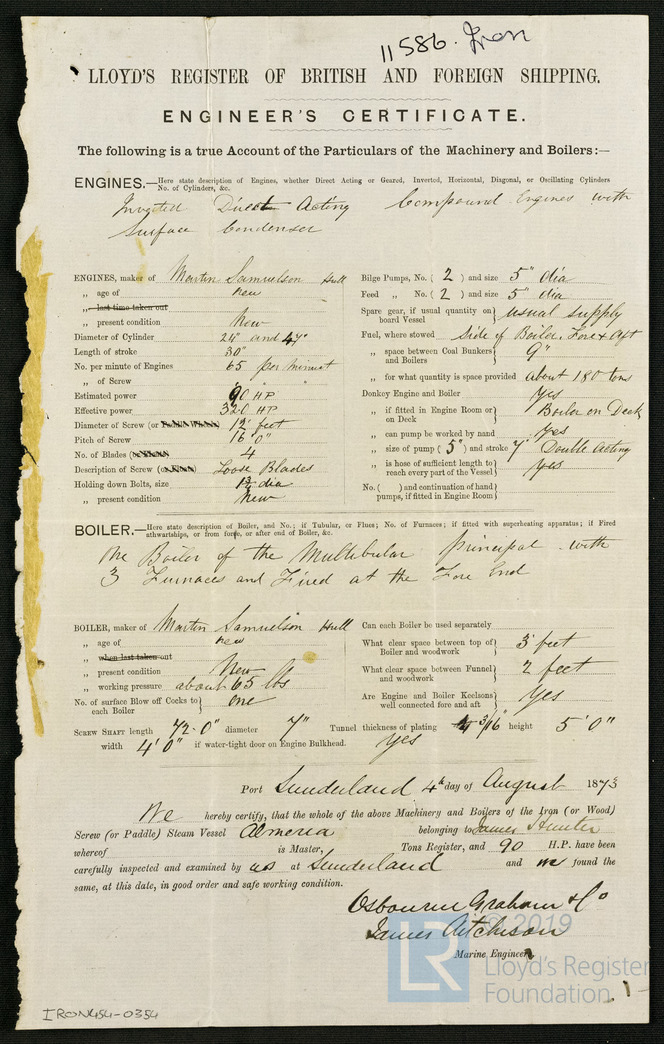 11586. Iron
LLOYD'S REGISTER OF BRITISH AND FOREIGN SHIPPING.
ENGINEER'S CERTIFICATE.
The following is a true Account of the Particulars of the Machinery and Boilers:—
ENGINES.—Here state description of Engines, whether Direct Acting or Geared, Inverted, Horizontal, Diagonal, or Oscillating Cylinders
No. of Cylinders, &c.
Inverted Direct Acting Compound Engines with
Surface Condenser
ENGINES, maker of Martin Samuelson Hull
„ age of new
„ last time taken out
„ present condition New
Diameter of Cylinder 24" and 47"
Length of stroke 30"
No. per minute of Engines 65 per minut
„ of Screw " " "
Estimated power 90 HP
Effective power 320 HP
Diameter of Screw (or Paddle Wheels) 12 feet
Pitch of Screw 16' 0"
No. of Blades 4
Description of Screw Loose Blades
Holding down Bolts, size dia
„ present condition New
Bilge Pumps, No. ( 2 ) and size 5" dia
Feed „ No. ( 2 ) and size 5" dia
Spare gear, if usual quantity on board Vessel } usual supply
Fuel, where stowed Side of Boiler, Fore & Aft
„ space between Coal Bunkers and Boilers } 9"
„ for what quantity is space provided about 180 tons
Donkey Engine and Boiler Yes
„ if fitted in Engine Room or on Deck } Boiler on Deck
„ can pump be worked by hand Yes
„ size of pump ( 5" ) and stroke 7" Double Acting
„ is hose of sufficient length to reach every part of the Vessel } Yes
No. ( ) and continuation of hand pumps, if fitted in Engine Room }
BOILER.—Here state description of Boiler, and No.; if Tubular, or Flues; No. of Furnaces; if fitted with superheating apparatus; if Fired
athwartships, or from fore, or after end of Boiler, &c.
One Boiler of the Multibular principal with
3 Furnaces and Fired at the Fore End
BOILER, maker of Martin Samuelson Hull
„ age of new
„ when last taken out
„ present condition New
„ working pressure about 65 lbs
No. of surface Blow off Cocks to each Boiler } one
Can each Boiler be used separately
What clear space between top of Boiler and woodwork } 3 feet
What clear space between Funnel and woodwork } 2 feet
Are Engine and Boiler Keelsons well connected fore and aft } Yes
SCREW SHAFT length 72-0" diameter 7" Tunnel thickness of plating 3/16" height 5' 0"
width 4' 0" if water-tight door on Engine Bulkhead. Yes
Port Sunderland 4th day of August 1873
We hereby certify, that the whole of the above Machinery and Boilers of the Iron (or Wood)
Screw (or Paddle) Steam Vessel Almeria belonging to James Hunter
whereof is Master, Tons Register, and 90 H.P. have been
carefully inspected and examined by us at Sunderland and we found the
same, at this date, in good order and safe working condition.
Osbourne Graham & Co
James Aitchison
Marine Engineer
© 2019
LR
Lloyd's Register
Foundation
IRON454-0354